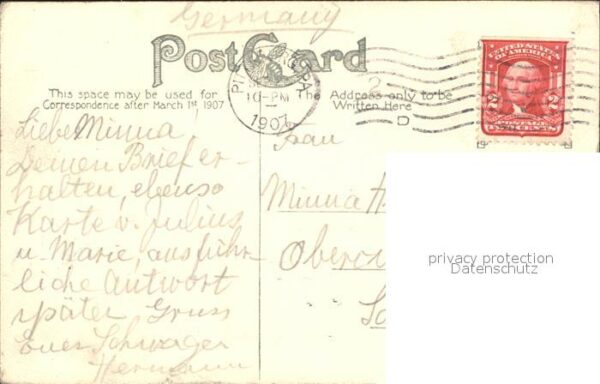 Germany
Post Card
This space may be used for
Correspondence after March 1st 1907
The Address only to be
Written Here
10-PM
1907
D
UNITED STATES
OF AMERICA
2 2
POSTAGE
TWO CENTS
Liebe Minna!
Deinen Brief er-
halten, ebenso
Karte v. Julius
u. Marie, ausführ-
liche Antwort
später Gruss
euer Schwager
Hermann
Frau
Minna H
Ober
privacy protection
Datenschutz